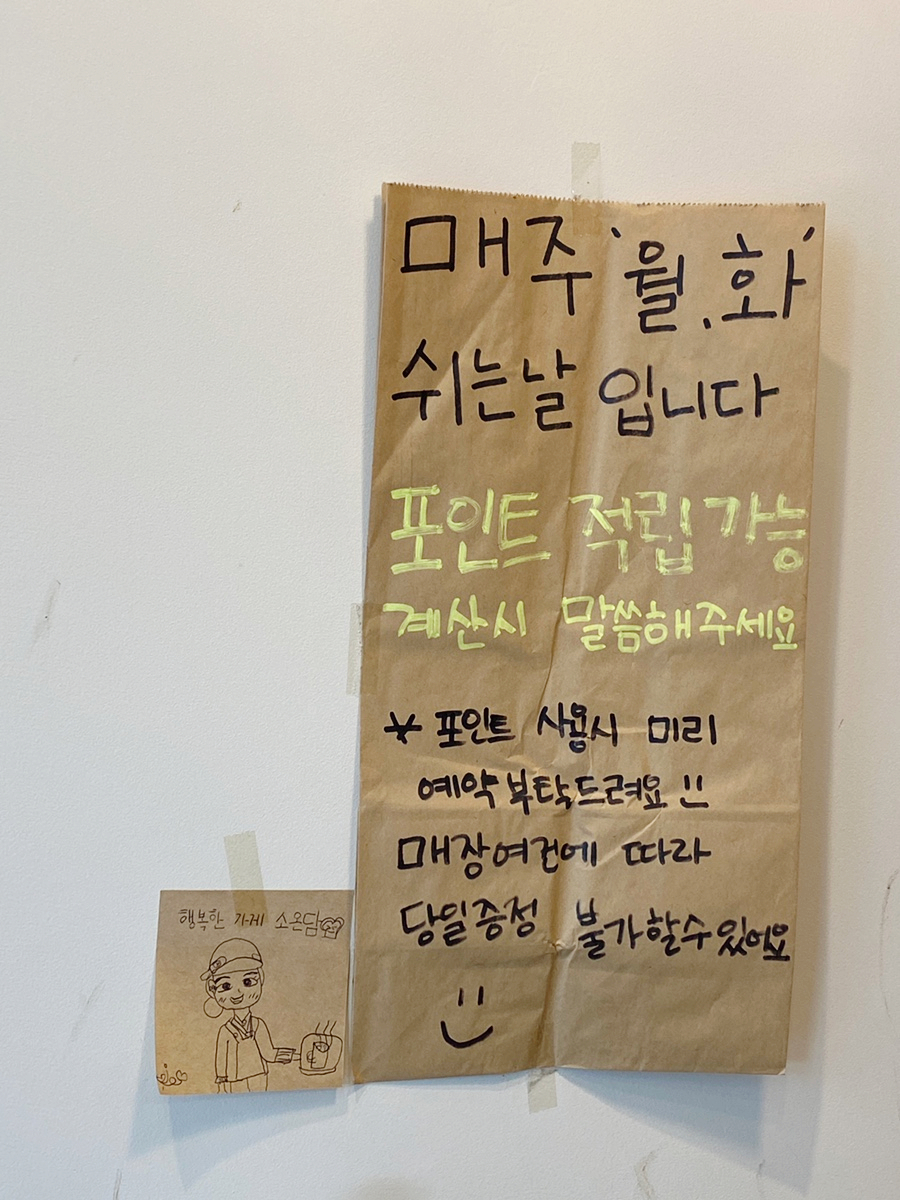 매주 '월,화'
쉬는날 입니다
포인트 적립 가능
계산시 말씀해주세요
* 포인트 사용시 미리
예약부탁드려요 !!
매장여건에 따라
당일증정 불가할수있어요
행복한 가게 소온담